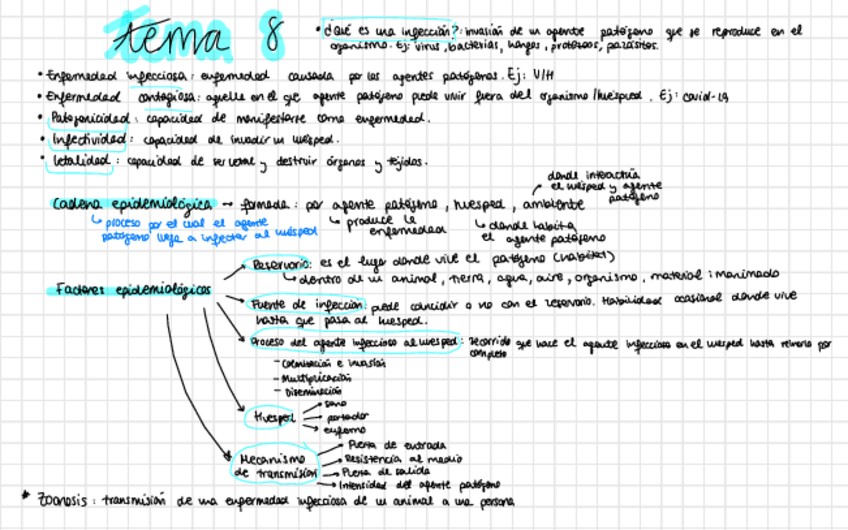 tema 8
• ¿Qué es una infección?: invasión de un agente patógeno que se reproduce en el
organismo. Ej: virus, bacterias, hongos, protozoos, parásitos.
• Enfermedad infecciosa: enfermedad causada por los agentes patógenos. Ej: VIH
• Enfermedad contagiosa: aquella en el que agente patógeno puede vivir fuera del organismo/huésped. Ej: covid-19
• Patogenicidad: capacidad de manifestarse como enfermedad.
• Infectividad: capacidad de invadir un huésped.
• Letalidad: capacidad de ser letal y destruir órganos y tejidos.
donde interactúa
el huésped y agente
patógeno
Cadena epidemiológica → formada: por agente patógeno, huésped, ambiente
proceso por el cual el agente
patógeno llega a infectar al huésped
produce la
enfermedad
donde habita
el agente patógeno
Factores epidemiológicos
Reservorio: es el lugar donde vive el patógeno (habitat)
dentro de un animal, tierra, agua, aire, organismo, material inanimado
Fuente de infección: puede coincidir o no con el reservorio. Habilidad ocasional donde vive
hasta que pasa al huésped.
Proceso del agente infeccioso al huésped: recorrido que hace el agente infeccioso en el huésped hasta por
completo
- Colonización e invasión
- Multiplicación
- Diseminación
Huésped
sano
portador
enfermo
Mecanismo
de transmisión
Puerta de entrada
Resistencia al medio
Puerta de salida
Intensidad del agente patógeno
* Zoonosis: transmisión de una enfermedad infecciosa de un animal a una persona